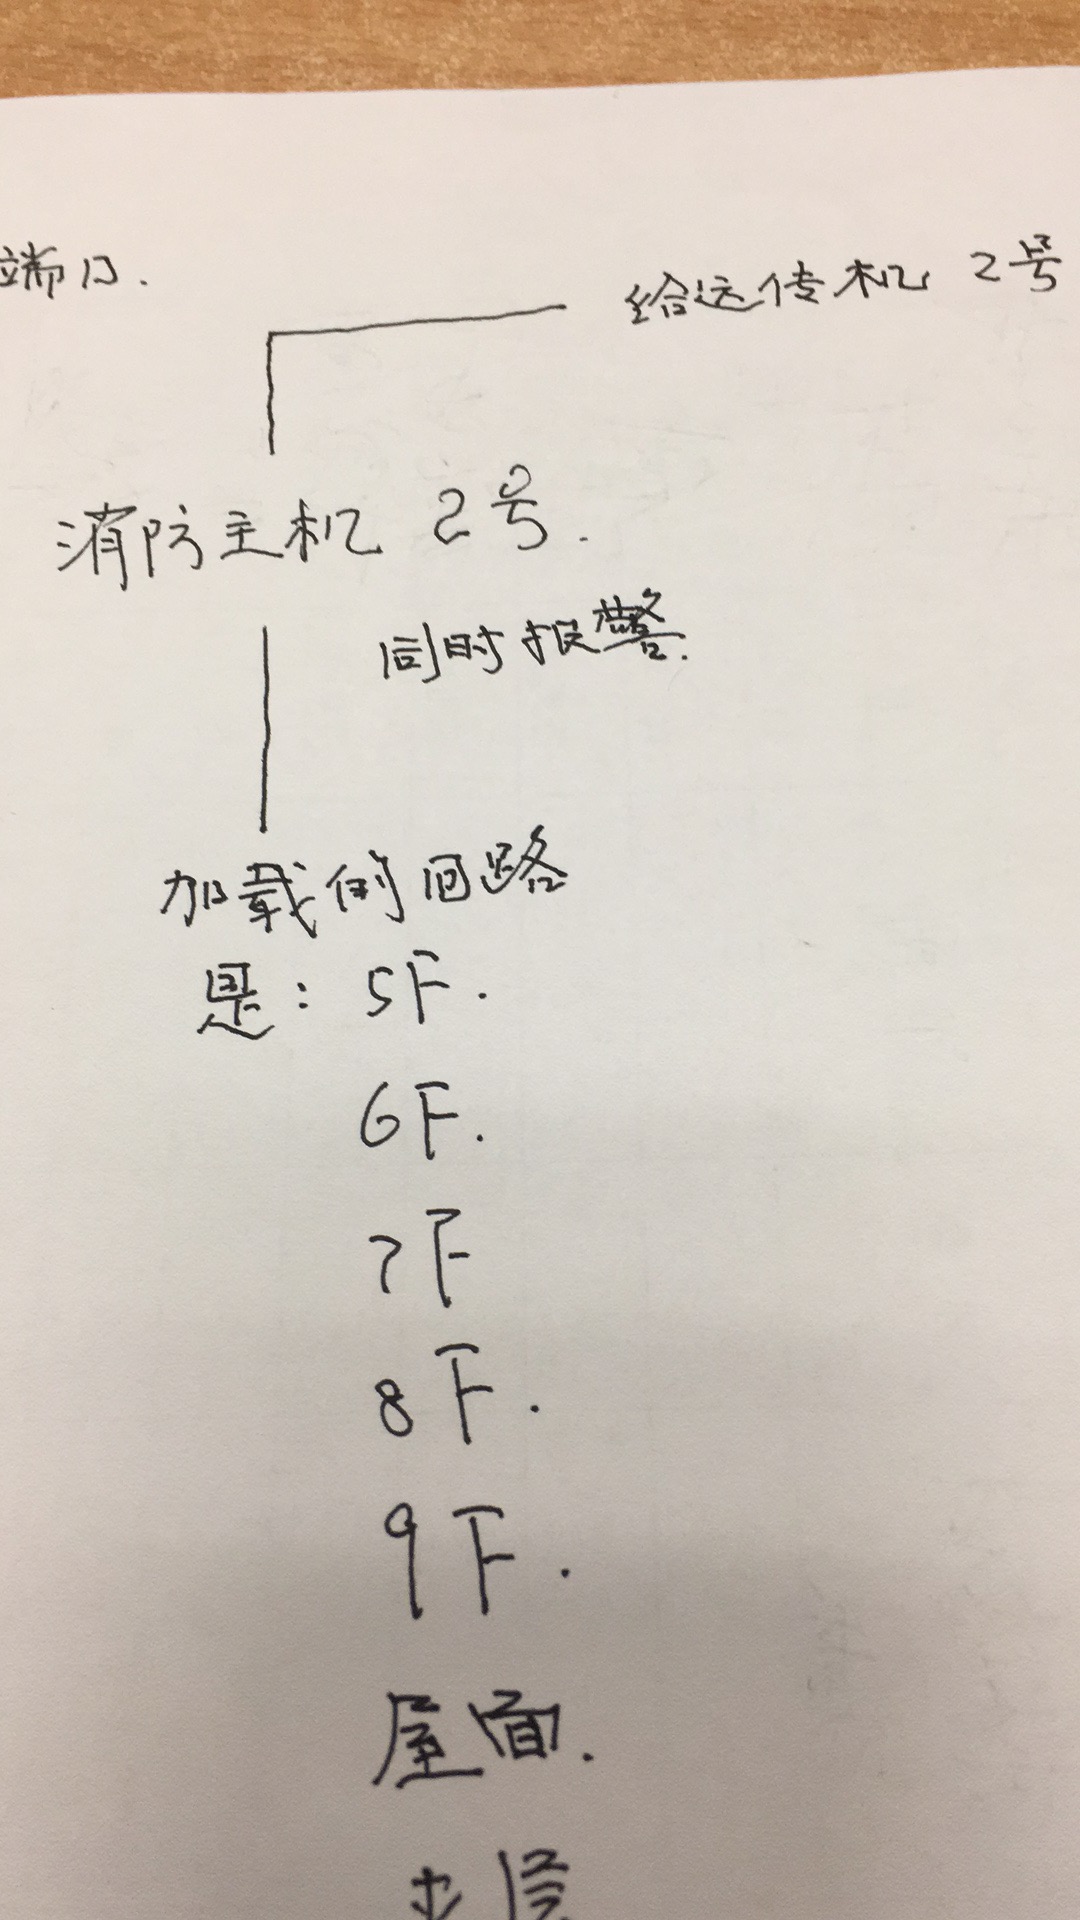 端口.
给远传机 2号
消防主机 2号.
同时报警.
加载的回路
是: 5F.
6F.
7F
8F.
9F.
屋面.